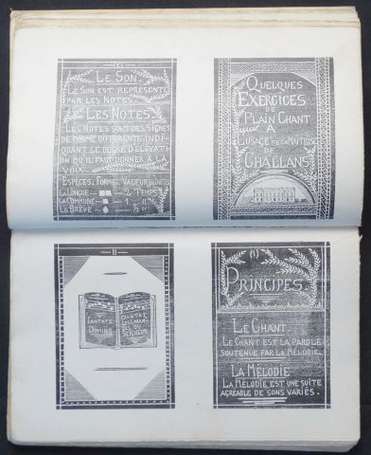 Le Son
Le Son est représenté
par les Notes.
Les Notes
Les Notes sont des signes
de forme différente indi-
quant le degré d'élévati-
on qu'il faut donner à la
voix.
Espèces: Forme: Valeur
La Longue 2 Temps
La Commune 1
La Brève ½
Quelques
Exercices
de
Plain Chant
à
l'usage de
Challans
II
Cantate
Domino
(1)
Principes
Le Chant
Le Chant est la parole
soutenue par la mélodie.
La Mélodie
La Mélodie est une suite
agréable de sons variés.